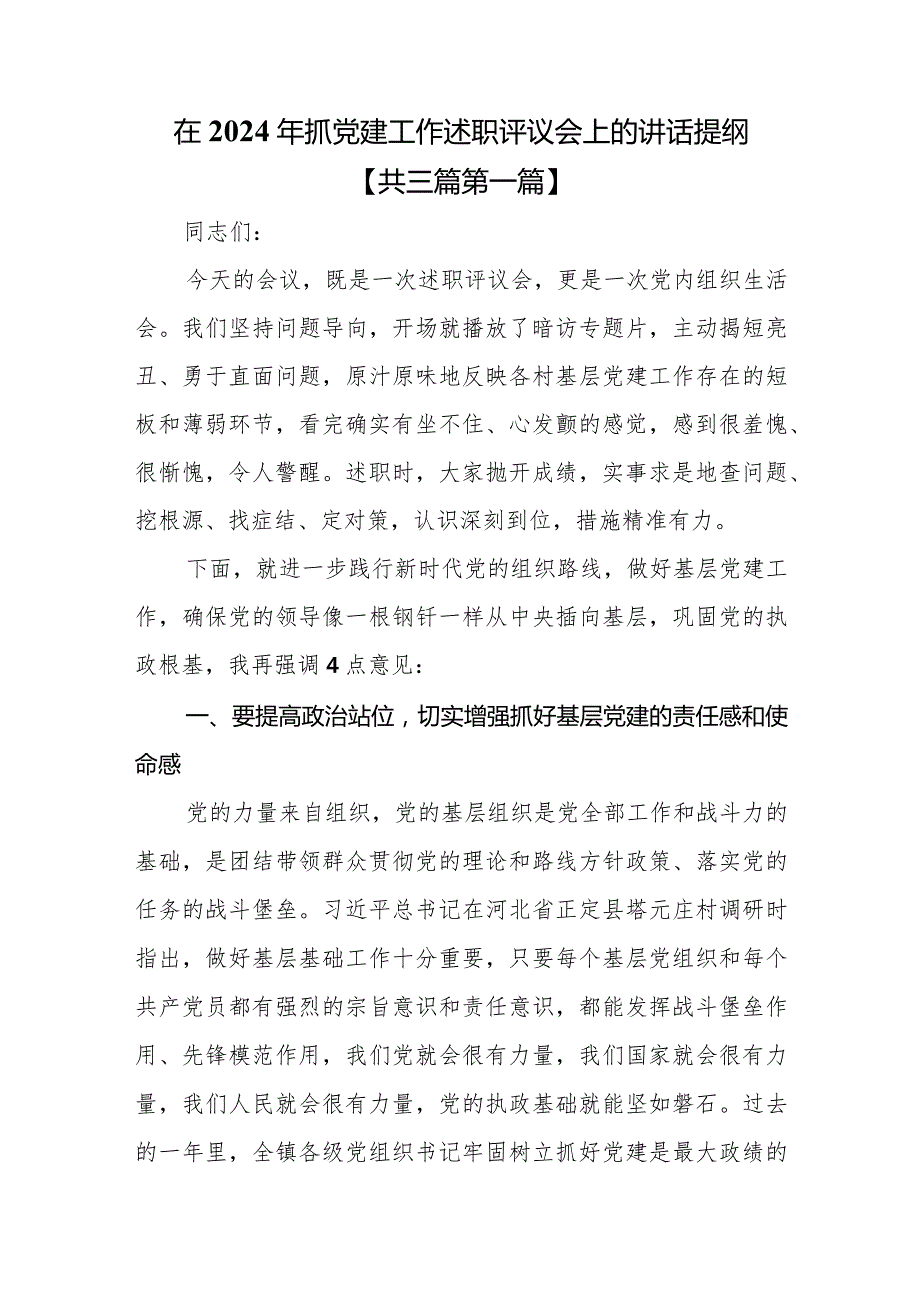 在 2024 年抓党建工作述职评议会上的讲话提纲
【共三篇第一篇】
同志们：
今天的会议，既是一次述职评议会，更是一次党内组织生活
会。我们坚持问题导向，开场就播放了暗访专题片，主动揭短亮
丑、勇于直面问题，原汁原味地反映各村基层党建工作存在的短
板和薄弱环节，看完确实有坐不住、心发颤的感觉，感到很羞愧、
很惭愧，令人警醒。述职时，大家抛开成绩，实事求是地查问题、
挖根源、找症结、定对策，认识深刻到位，措施精准有力。
下面，就进一步践行新时代党的组织路线，做好基层党建工
作，确保党的领导像一根钢钎一样从中央插向基层，巩固党的执
政根基，我再强调 4 点意见：
一、要提高政治站位，切实增强抓好基层党建的责任感和使
命感
党的力量来自组织，党的基层组织是党全部工作和战斗力的
基础，是团结带领群众贯彻党的理论和路线方针政策、落实党的
任务的战斗堡垒。习近平总书记在河北省正定县塔元庄村调研时
指出，做好基层基础工作十分重要，只要每个基层党组织和每个
共产党员都有强烈的宗旨意识和责任意识，都能发挥战斗堡垒作
用、先锋模范作用，我们党就会很有力量，我们国家就会很有力
量，我们人民就会很有力量，党的执政基础就能坚如磐石。过去
的一年里，全镇各级党组织书记牢固树立抓好党建是最大政绩的